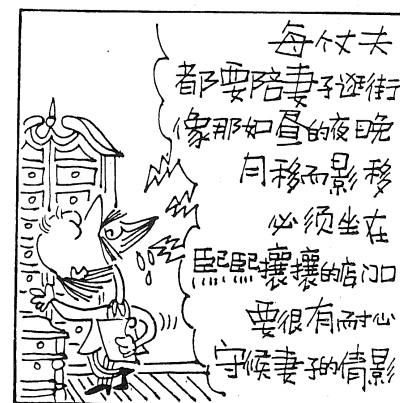 每个丈夫
都要陪妻子逛街
像那如昼的夜晚
月移而影移
必须坐在
熙熙攘攘的店门口
要很有耐心
守候妻子的倩影